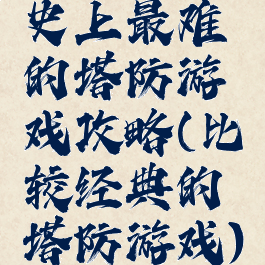 史上最难
的塔防游
戏攻略(比
较经典的
塔防游戏)